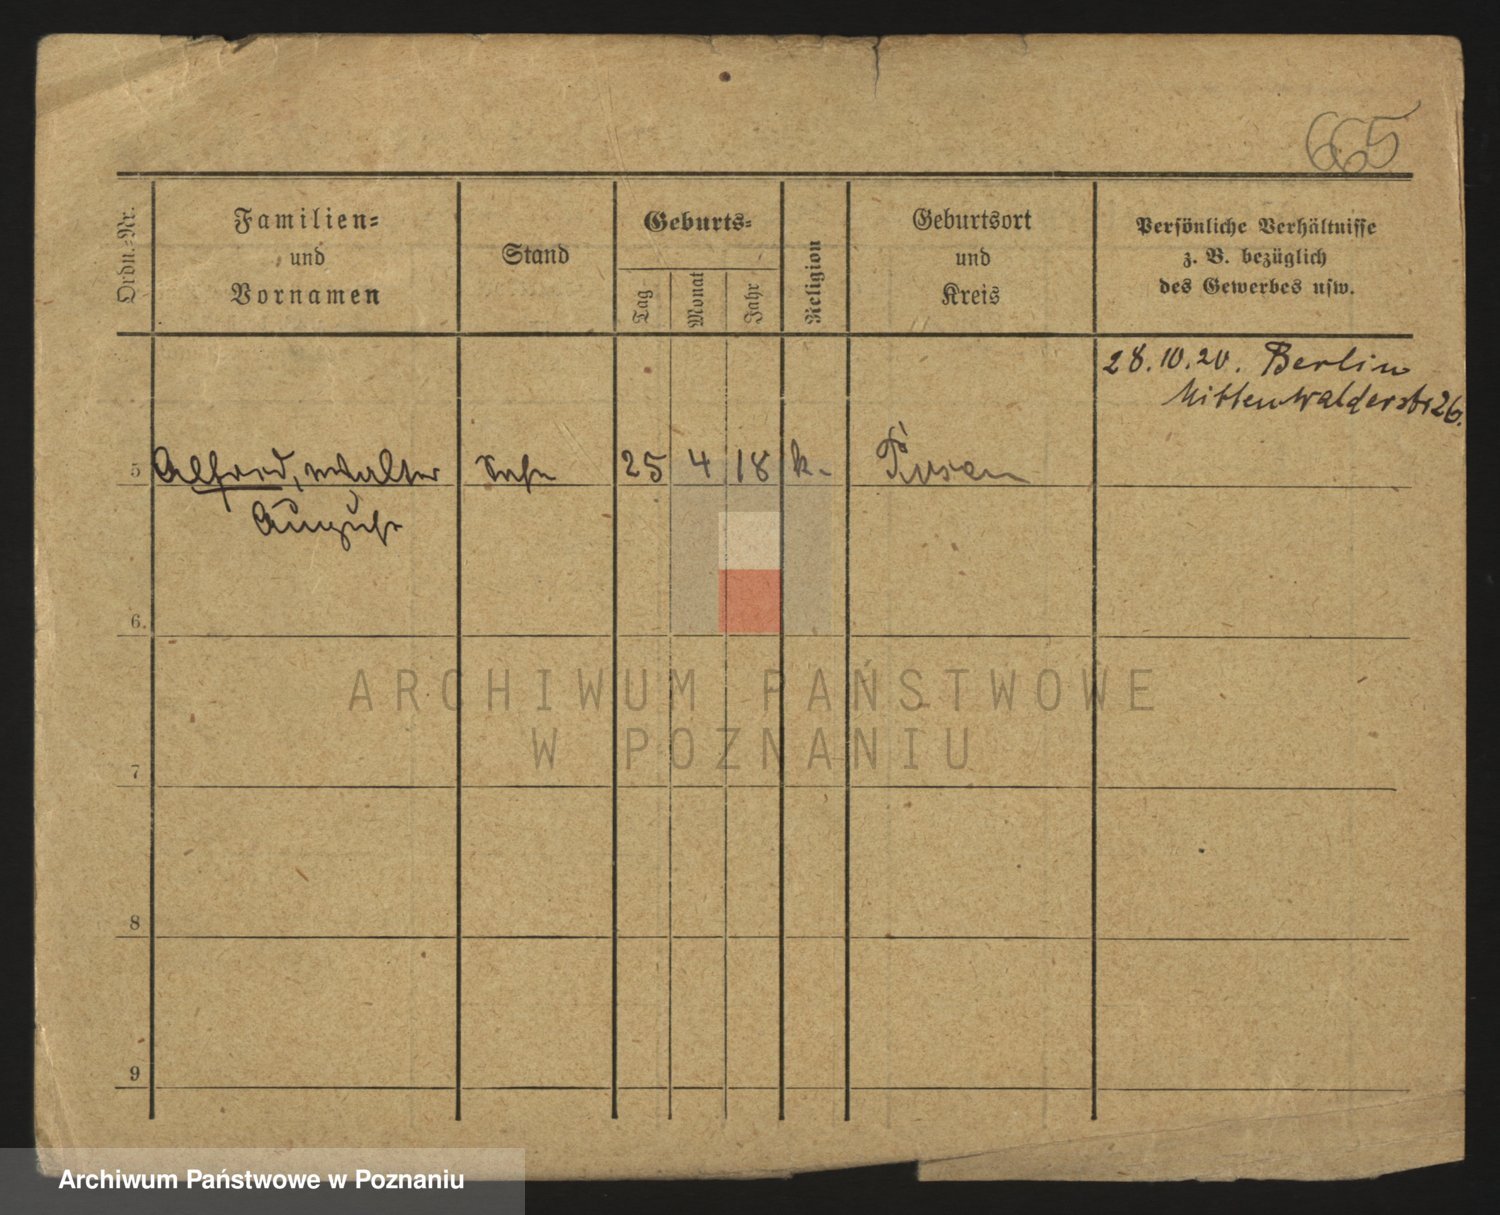 665
Ordn.-Nr.
Familien-
und
Vornamen
Stand
Geburts-
Tag
Monat
Jahr
Religion
Geburtsort
und
Kreis
Persönliche Verhältnisse
z. B. bezüglich
des Gewerbes usw.
28.10.20. Berlin
Mittenwalderstr 26.
5 Alfred, Walter Sohn 25 4 18 k. Posen
August
6.
7
8
9
ARCHIWUM PAŃSTWOWE
W POZNANIU
Archiwum Państwowe w Poznaniu